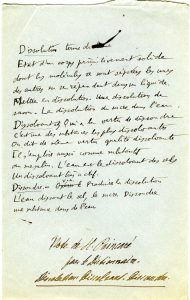 Dissolution terme de
Etat d'un corps primitivement solide
dont les molécules se sont séparées les unes
des autres en se répandant dans un liquide.
Mettre en dissolution. Une dissolution de
savon. La dissolution du sucre dans l'eau.
Dissolvant Qui a la vertu de dissoudre
C'est une des substances les plus dissolvantes
On dit de même vertu, qualité dissolvante
Il s'emploie aussi comme substantif
au masculin. L'eau est le dissolvant des sels
Un dissolvant très actif.
Dissoudre Produire la dissolution
L'eau dissout le sel, le sucre Dissoudre
une substance dans de l'eau
Note de
par
Dissolution Dissolvant Dissoudre